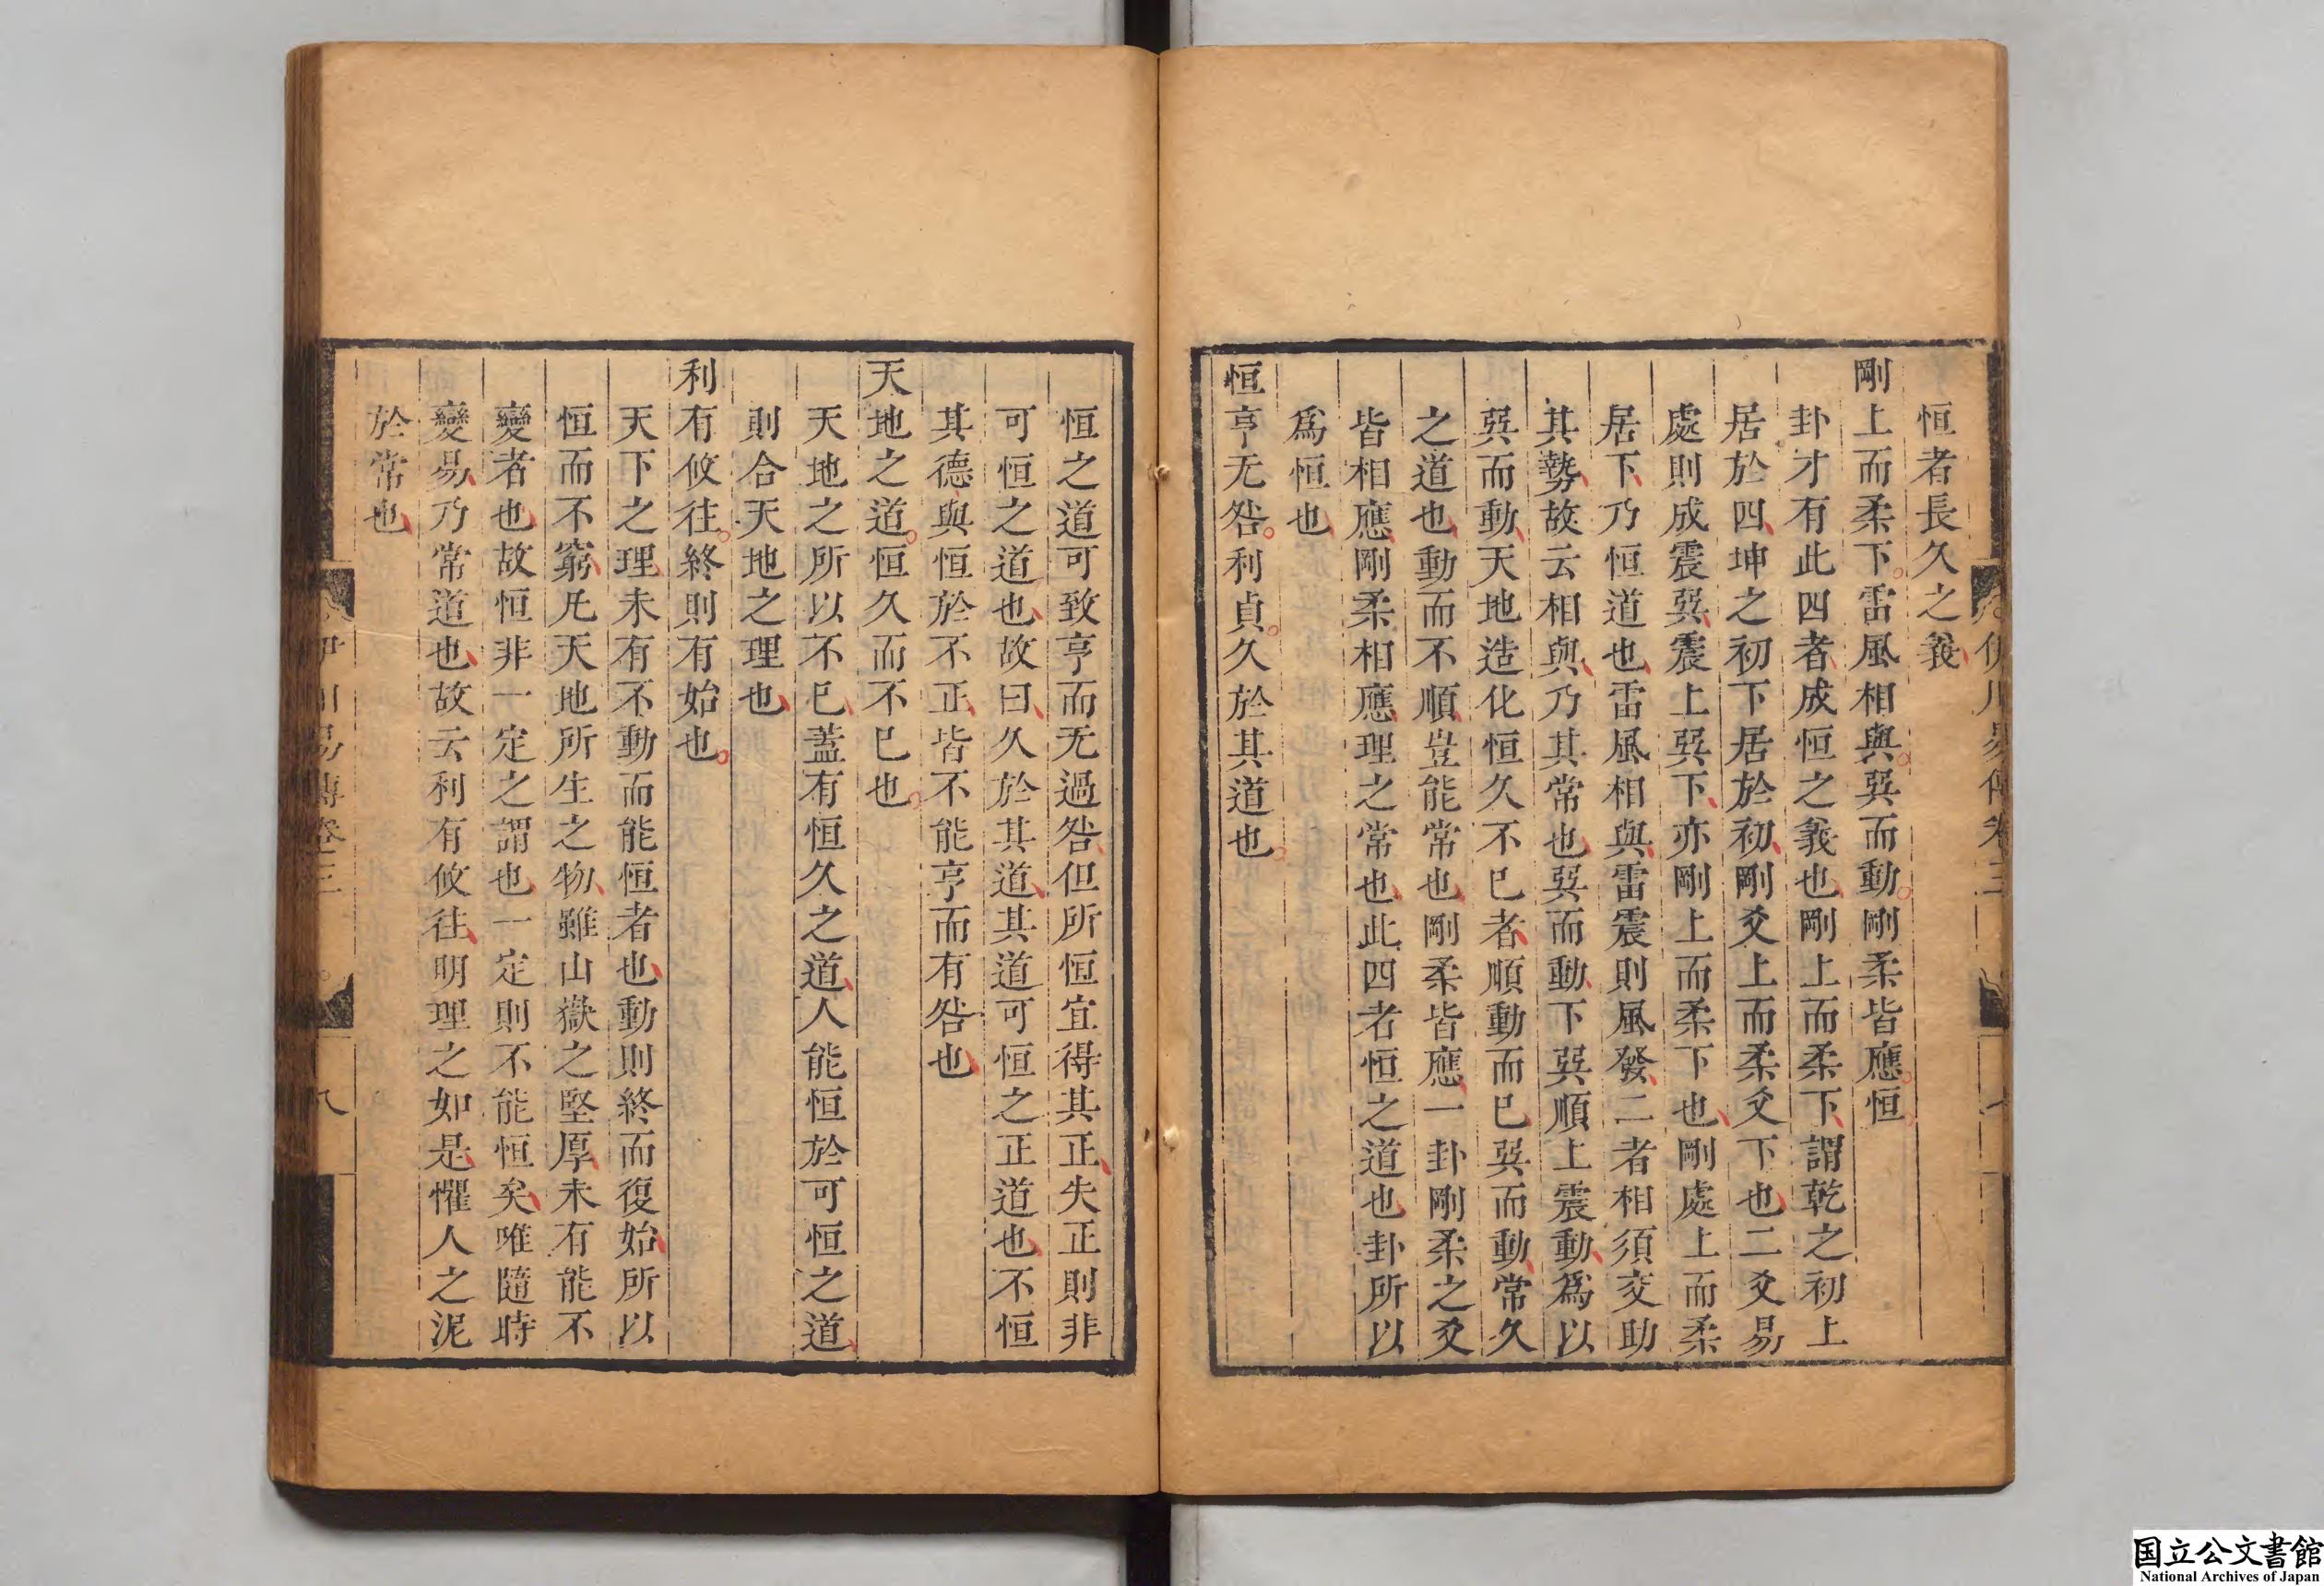 恒者長久之義
剛上而柔下雷風相與巽而動剛柔皆應恒
卦才有此四者成恒之義也剛上而柔下謂乾之初上
居於四坤之初下居於初剛爻上而柔爻下也二爻易
處則成震巽震上巽下亦剛上而柔下也剛處上而柔
居下乃恒道也雷風相與雷震則風發二者相須交助
其勢故云相與乃其常也巽而動下巽順上震動爲以
巽而動天地造化恒久不已者順動而已巽而動常久
之道也動而不順豈能常也剛柔皆應一卦剛柔之爻
皆相應剛柔相應理之常也此四者恒之道也卦所以
爲恒也
恒亨无咎利貞久於其道也
恒之道可致亨而无過咎但所恒宜得其正失正則非
可恒之道也故曰久於其道其道可恒之正道也不恒
其德與恒於不正皆不能亨而有咎也
天地之道恒久而不已也
天地之所以不已蓋有恒久之道人能恒於可恒之道
則合天地之理也
利有攸往終則有始也
天下之理未有不動而能恒者也動則終而復始所以
恒而不窮凡天地所生之物雖山嶽之堅厚未有能不
變者也故恒非一定之謂也一定則不能恒矣唯隨時
變易乃常道也故云利有攸往明理之如是懼人之泥
於常也
伊川易傳卷三
八
国立公文書館
National Archives of Japan